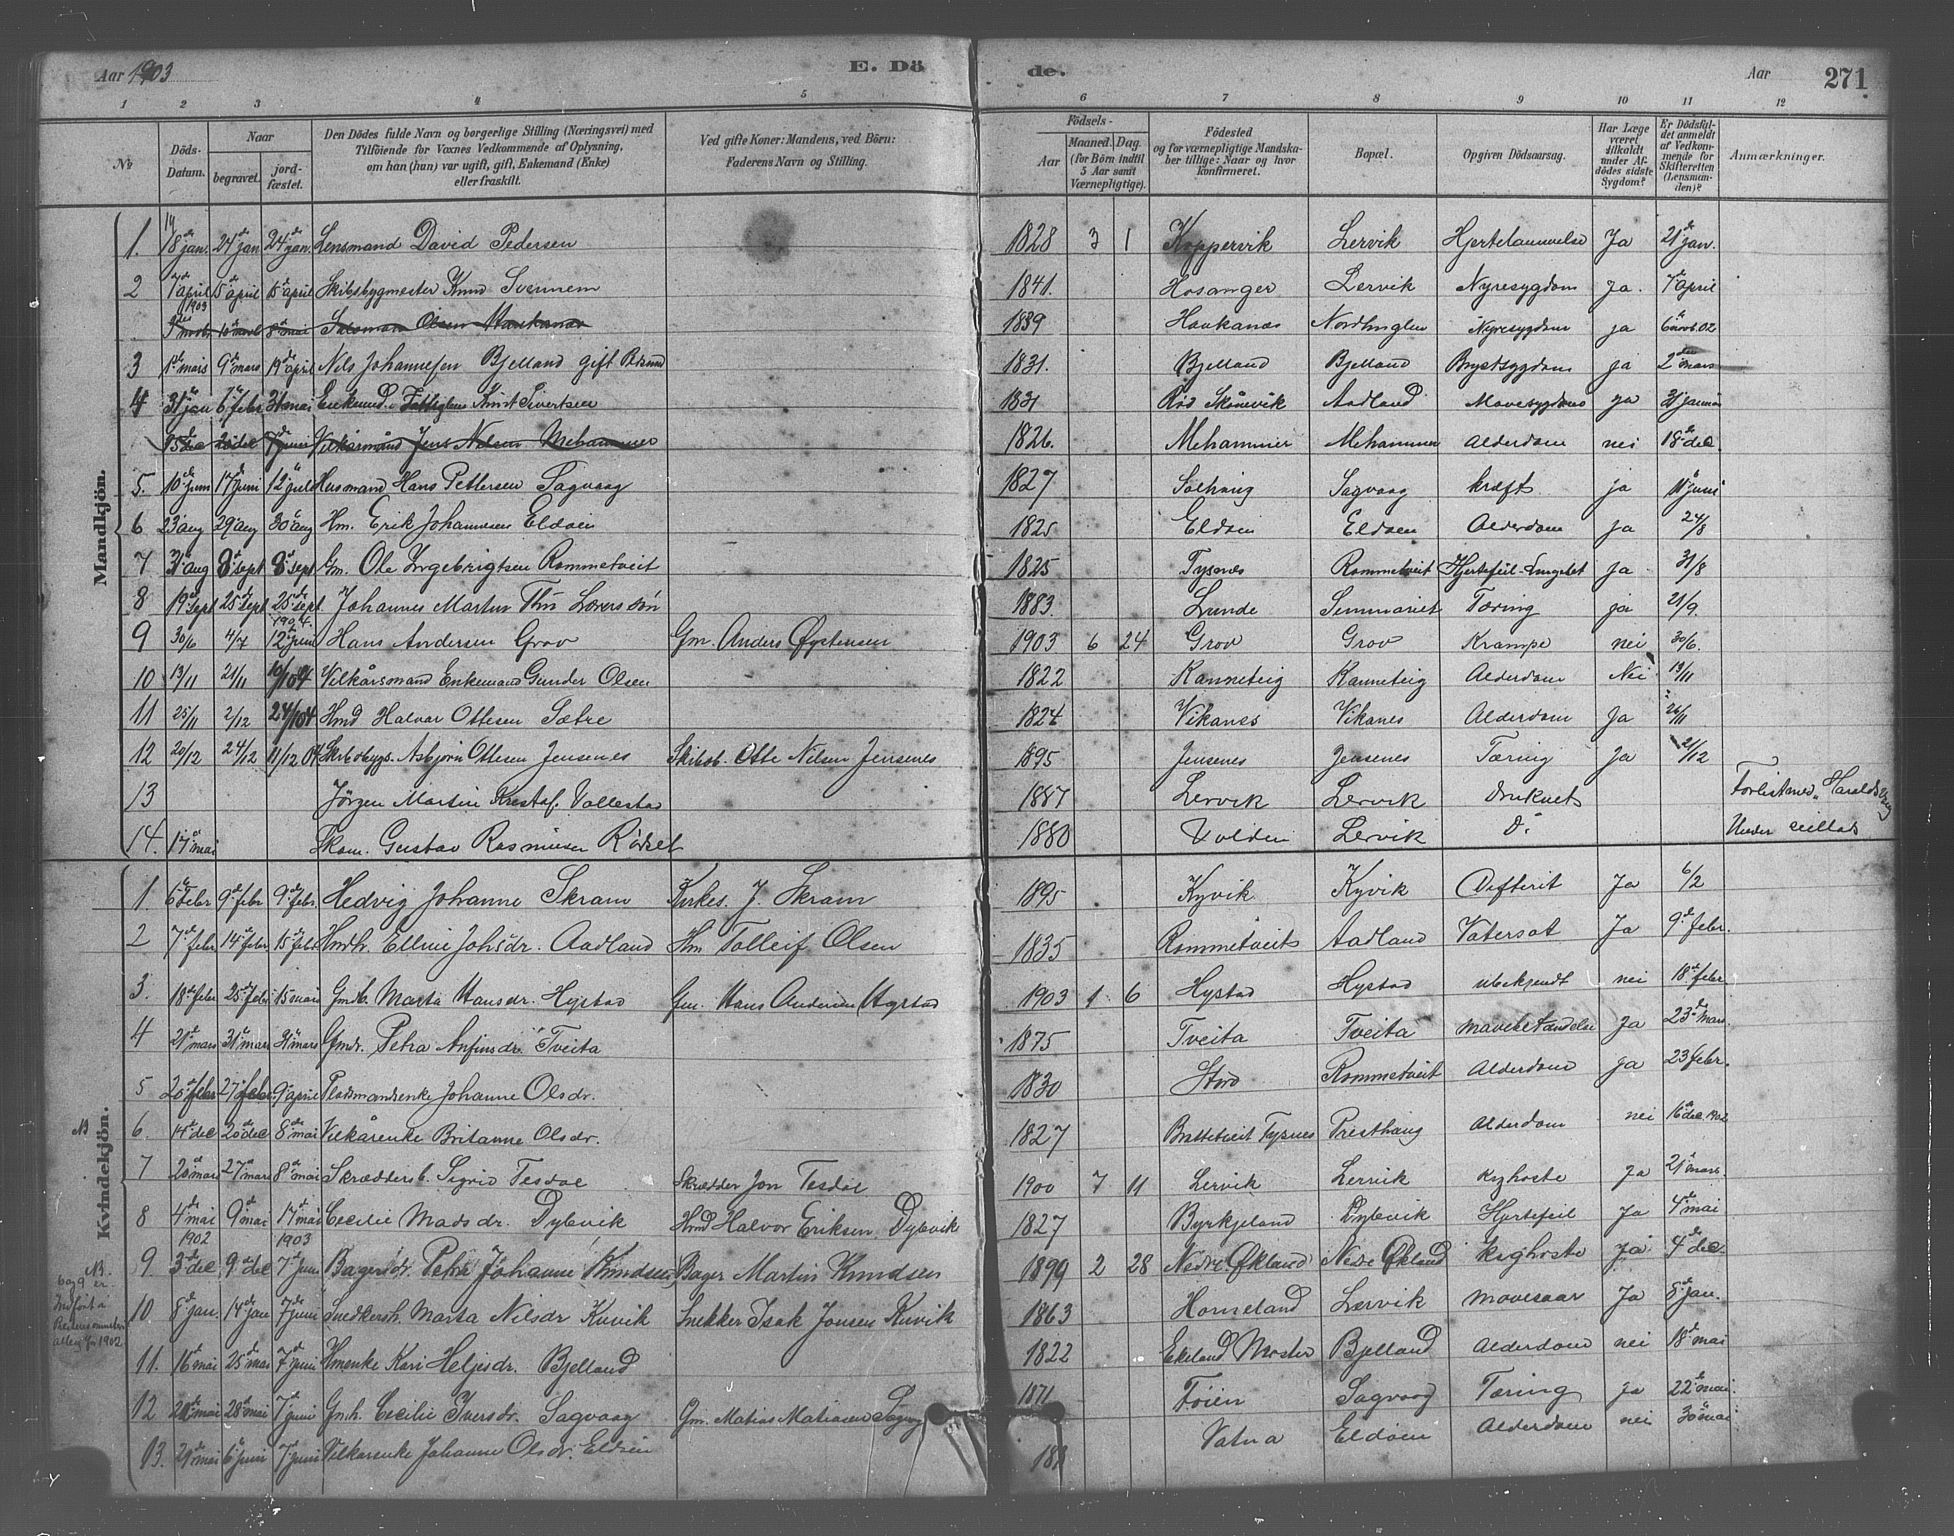 Aar 1903
E. Dö
de.
Aar
271
1 2 3 4 5 6 7 8 9 10 11 12
No
Döds-Datum.
Naar
begravet.
jord-fæstet.
Den Dödes fulde Navn og borgerlige Stilling (Næringsvei) med
Tilföiende for Voxnes Vedkommende af Oplysning,
om han (hun) var ugift, gift, Enkemand (Enke)
eller fraskilt.
Ved gifte Koner: Mandens, ved Börn:
Faderens Navn og Stilling.
Födsels-
Aar
Maaned. Dag.
(for Börn indtil
5 Aar samt
Værnepligtige).
Födested
og for værnepligtige Mandska-
ber tillige: Naar og hvor
konfirmeret.
Bopæl.
Opgiven Dödsaarsag.
Har Læge
været
tilkaldt
under Af-
dödes sidste
Sygdom?
Er Dödsfal-
det anmeldt
af Vedkom-
mende for
Skifteretten
(Lensman-
den)?
Anmærkninger.
Mandkjön.
1. 18 jan. 24 jan 24 jan. Lensmand David Pedersen 1828 3 1 Koppervik Lervik Hjertelammelse Ja 21 jan.
2 7 april 15 april 15 april Skibsbygmester Knud Svennem 1841. Hosanger Lervik Nyresygdom ja. 7 april
1903 Salomon Olsen Haukanæs 1839 Haukanæs Nordhuglen Nyresygdom ja 6 novb. 02
3 1 mars 9 mars 19 april Nils Johannesen Bjelland gift 1831. Bjelland Bjelland Brystsygdom ja 2 mars
4 31 jan 7 febr 31 mai Enkemd. Fattiglem Knut Sivertsen 1831 Röd Skånevik Aadland Mavesygdom ja 31 januar
15 dec 20 dec 7 juni Vilkårsmand Jens Nilsen Mehammer 1826. Mehammer Mehammer Alderdom nei 18 dec.
5. 10 juni 17 juni 12 juli Husmand Hans Pettersen Sagvaag 1827 Solhaug Sagvaag kræft ja 11 juni
6 23 aug 29 aug 30 aug Hm. Erik Johannesen Eldøen 1825 Eldøen Eldøen Alderdom ja 24/8
7 31 aug 8 sept 8 sept Gm. Ole Ingebrigtsen Rommetveit 1825 Tysnæs Rommetveit Hjertefeil ja 31/8
8 19 sept 25 sept 25 sept. Johannes Martin 1883. Lunde Seminariet Tæring ja 21/9.
9 30/6 4/7 1904. 12 juni Hans Andersen Grov Gm. Anders Øystensen 1903 6 24 Grov Grov Krampe nei 30/6.
10 13/11 21/11 10/1 04 Vilkårsmand Enkemand Gunder Olsen 1822 Kanneteig Kanneteig Alderdom Nei 13/11
11 25/11 2/12 24/1 04 Hmd Halvor Ottesen Sætre 1824 Vikanes Vikanes Alderdom Ja 26/11
12 20/12 24/12 11/12 04 Skibsbygs. Asbjørn Ottesen Jensenes Skibsb. Otte Nilsen Jensenes 1895 Jensenes Jensenes Tæring Ja 21/12
13 Jörgen Martin Kristof. Vallestad 1887 Lervik Lervik druknet Forlistmed „Haralds
14. 17 mai Gustav Rasmussen Rödset 1880 Volden Lervik do Under seillads
Kvindekjön.
1. 6 febr 9 febr 9 febr. Hedvig Johanne Skram Kirkes. J. Skram 1895 Kyvik Kyvik Difterit Ja 6/2
2 7 febr 14 febr 15 febr Hmdh. Elline Johsdr. Aadland Hm Tolleif Olsen 1835 Rommetveit Aadland Vatersot Ja 9 febr.
3. 18 febr 25 febr 15 mai Gmb. Marta Hansdr. Hystad Gm. Hans Andersen Hystad 1903 1 6 Hystad Hystad ubekjendt nei 18 febr.
4 21 mars 31 mars 31 mars Gmdr. Petra Anfinsdr. Tveita 1875 Tveita Tveita mavebetændelse Ja 23 mars
5 20 febr 27 febr 9 april Pladsmandsenke Johanne Olsdr. 1830 Stord Rommetveit Alderdom ja 23 febr.
NB 6. 14 dec 20 dec 8 mai Vilkårenke Britanne Olsdr. 1827 Brattetveit Tysnes Presthaug Alderdom nei 16 dec 1902
7 20 mars 27 mars 8 mai Skrædderb. Sigrid Tesdal Skrædder Jon Tesdal 1900 7 11 Lervik Lervik Kighoste Ja 21 mars.
8 4 mai 9 mai 17 mai Cecilie Madsdr. Dybvik Hmd Halvor Eriksen Dybvik 1827 Byrkjeland Dybvik Hjertefeil Ja 4 mai
9 1902 3 dec 9 dec 1903 7 juni Bagerdr. Petra Johanne Knudsen Bager Martin Knudsen 1899 2 28 Nedre Økland Nedre Økland Kighoste Ja 4 dec.
NB. 6 og 9 er indført i 1902
10 8 jan. 14 jan 7 juni Snedkerh. Marta Nilsdr Kuvik Snekker Isak Jonsen Kuvik 1863 Horneland Lærvik mavesaar Ja 8 jan.
11. 16 mai 25 mai 7 juni Hmenke Kari Heljesdr. Bjelland 1822 Ekeland Moster Bjelland Alderdom nei 18 mai
12 20 mai 28 mai 7 juni Gmh. Cecilie Iversdr. Sagvaag Gm. Matias Matiasen Sagvg 1871 Föien Sagvaag Tæring Ja 22 mai.
13. 29 mai 6 juni 7 juni Vilkårenke Johanne Olsdr. Eldøen 18 Vatna Eldöen Alderdom nei 30 mai